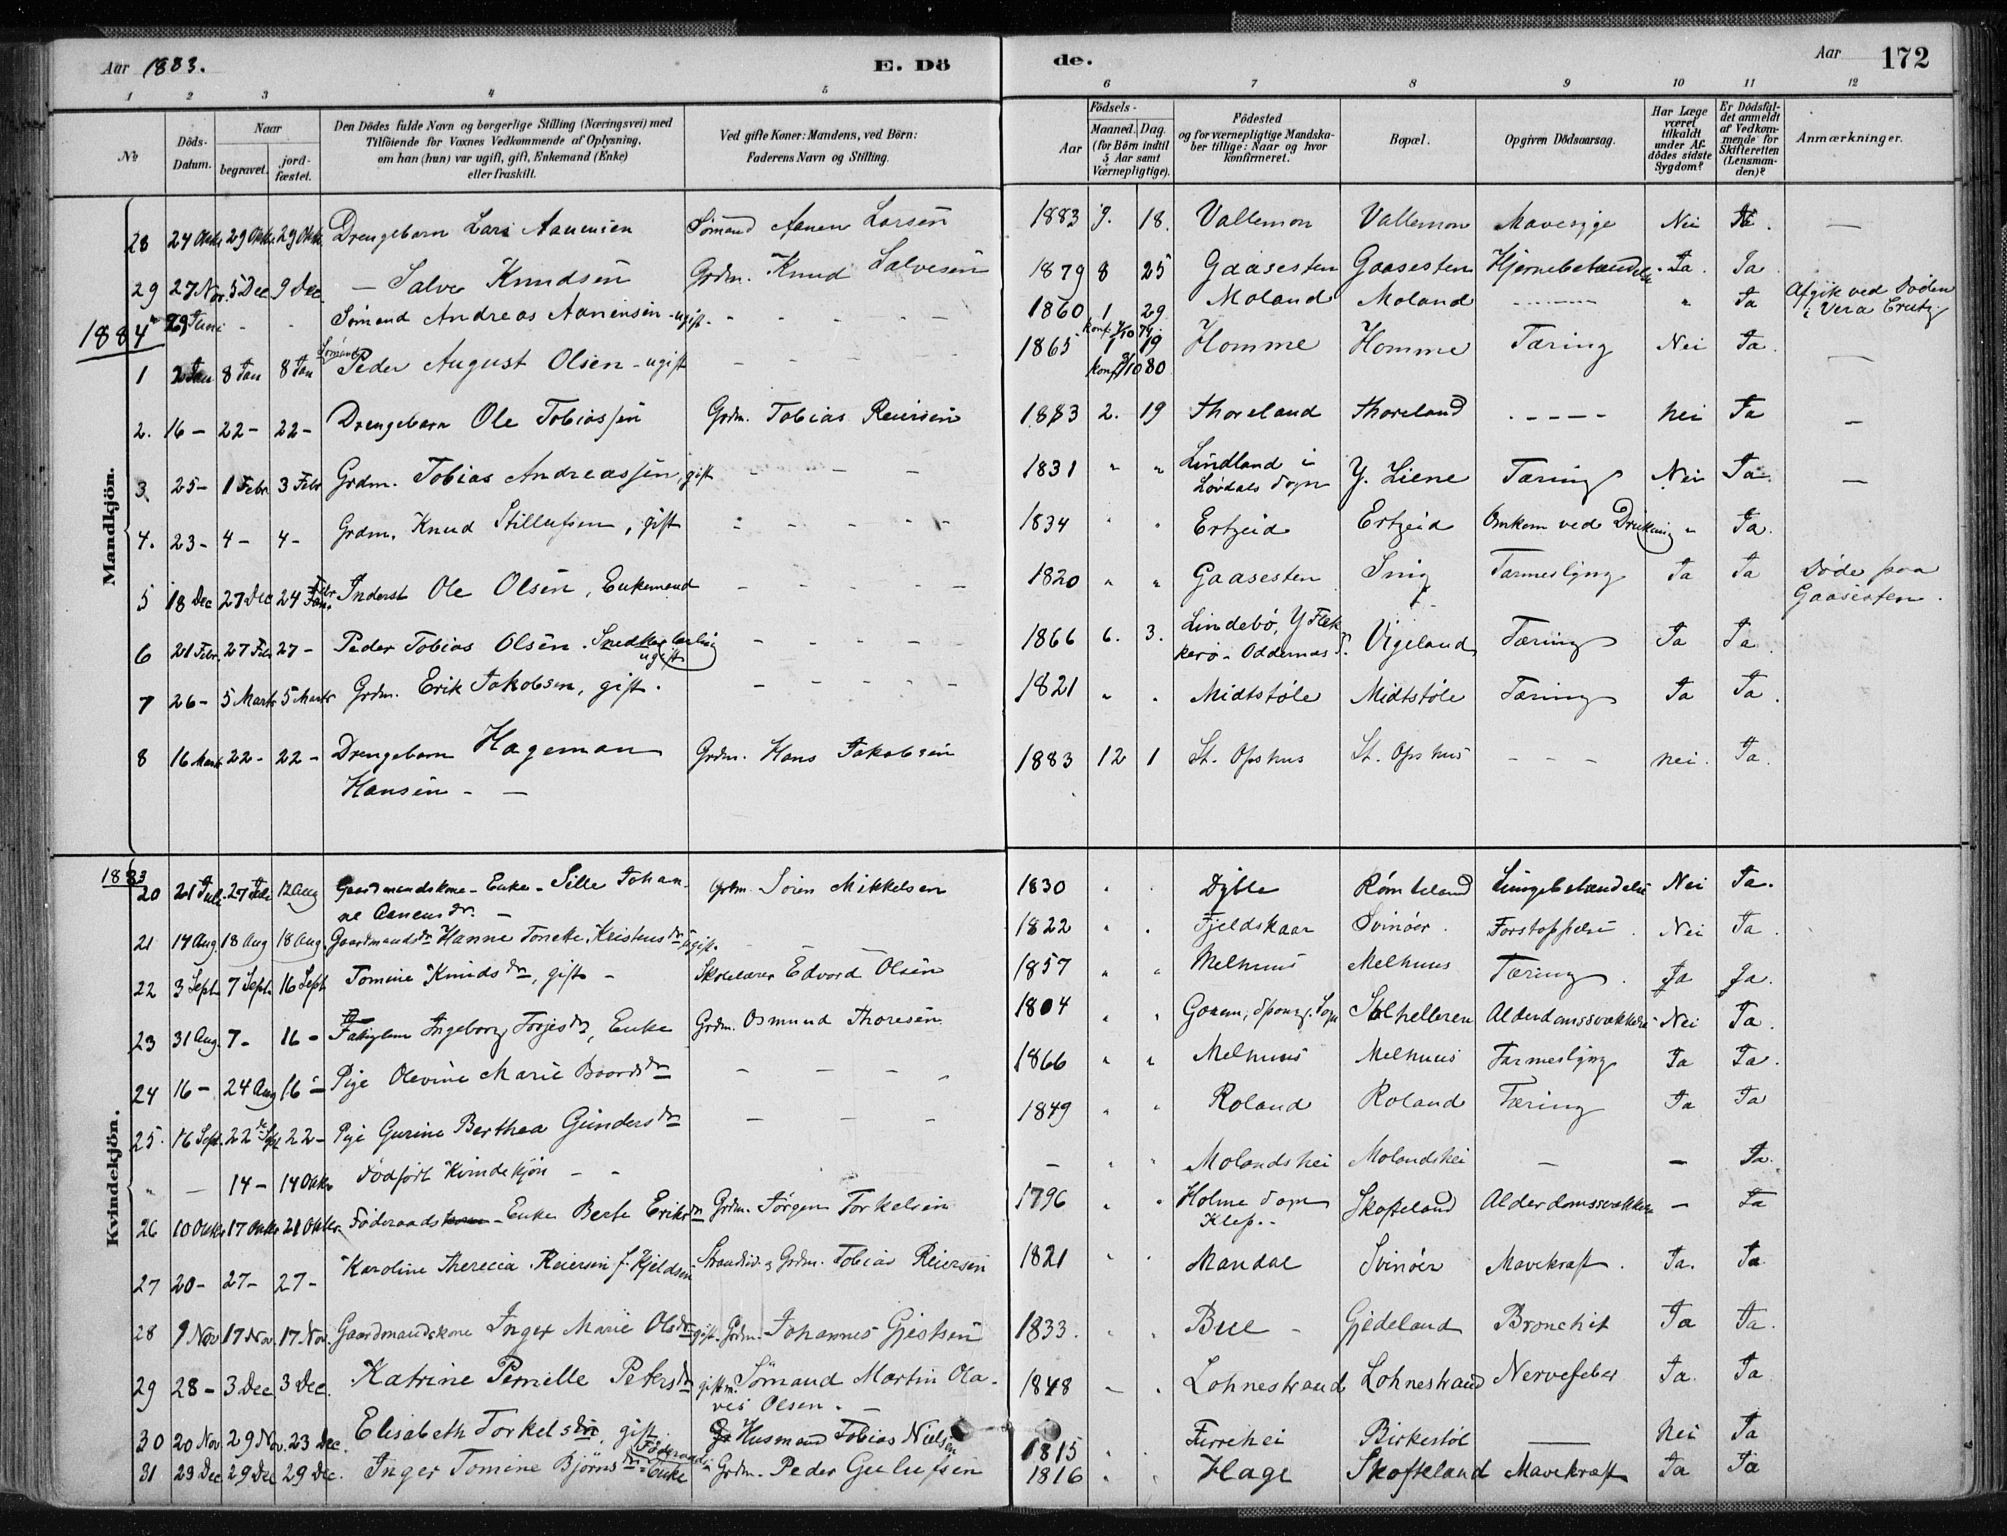 Aar 1883. E. Dö de. Aar 172
1 2 3 4 5 6 7 8 9 10 11 12
No
Döds-Datum.
Naar
begravet.
jord-fæstet.
Den Dödes fulde Navn og borgerlige Stilling (Næringsvei) med
Tilföiende for Voxnes Vedkommende af Oplysning,
om han (hun) var ugift, gift, Enkemand (Enke)
eller fraskilt.
Ved gifte Koner: Mandens, ved Börn:
Faderens Navn og Stilling.
Födsels-
Aar
Maaned. Dag.
(for Börn indtil
5 Aar samt
Værnepligtige).
Födested
og for værnepligtige Mandska-
ber tillige: Naar og hvor
konfirmeret.
Bopæl.
Opgiven Dödsaarsag.
Har Læge
været
tilkaldt
under Af-
dödes sidste
Sygdom?
Er Dödsfal-
det anmeldt
af Vedkom-
mende for
Skifteretten
(Lensman-
den)?
Anmærkninger.
Mandkjön.
28 24 Oktbr 29 Oktbr 29 Oktbr Drengebarn Lars Aanensen Sömand Aanen Larsen 1883 9. 18. Vallemon Vallemon Mavesyge Nei Ja. —
29 27 Nov. 5 Dec 9 Dec. — Salve Knudsen Grdm. Knud Salvesen 1879 8 25 Gaasesten Gaasesten Hjernebetændelse Ja. Ja
1884 29 Juni - - Sömand Andreas Aanensen - ugift - - - - - 1860 1 29 Moland Moland ------ " Ja Afgik ved Döden i Vera Cruz
konf. 4/10 74.
1 2 Jan 8 Jan 8 Jan Sömand Peder August Olsen - ugift - - - - 1865 1 19 Homme Homme Tæring Nei Ja. —
konf. 3/10 80
2. 16 - 22 - 22 - Drengebarn Ole Tobiassen Grdm. Tobias Reiersen 1883 2. 19 Thoreland Thoreland ----- nei Ja —
3 25 - 1 Febr 3 Febr Grdm. Tobias Andreassen, gift - - - 1831 " " Lindland i Y. Liene Tæring Nei Ja. —
Lövdals Sogn
4. 23 - 4 - 4 - Grdm. Knud Stillufsen, gift - - - - - 1834 " " Ertzeid Ertzeid Omkom ved Drukning " Ja.
5 18 Dec 27 Dec 24 Febr Inderst Ole Olsen, Enkemand - - - - 1820 " " Gaasesten Snig Tarmeslyng Ja Ja Döde paa
Gaasesten.
6 21 Febr. 27 Febr 27 - Peder Tobias Olsen. Snedkerlærling - - - - 1866 6. 3. Lindebö, Y Flek- Vigeland Tæring Ja Ja.
ugift kerö - Oddernæs S.
7 26 - 5 Marts 5 Marts Grdm. Erik Jakobsen, gift. - - - - - 1821 " " Midtstöle Midtstöle Tæring Ja Ja.
8 16 Marts 22 - 22 - Drengebarn Hageman Grdm. Hans Jakobsen 1883 12 1 St. Opshus St. Opshus - - - nei. Ja.
Hansen - —
Kvindekjön.
1883
20 21 Juli 27 Juli 12 Aug Gaardmandskone - Enke - Sille Johan- Grdm. Sören Mikkelsen 1830 " " Dyble Römteland Lungebetændelse Nei Ja.
ne Aanensdr. —
21 14 Aug. 18 Aug 18 Aug. Gaardmandsdr Hanne Tonette Kristensdr ugift. 1822 " " Fjeldskaar Svinöer. Forstoppelse. Nei Ja.
22 3 Sept. 7 Sept. 16 Sept Tomine Knudsdr, gift - Skolelærer Edvard Olsen 1857 " " Melhuus Melhuus Tæring. Ja Ja.
23 31 Aug. 7 - 16 - Ingeborg Terjesdr, Enke Grdm. Osmund Thoresen 1804 " " Stolhelleren Alderdomssvækkelse Nei Ja.
24 16 - 24 Aug 16 - Pige Olevine Marie Baardsdr - - - - 1866 " " Melhuus Melhuus Tarmeslyng Ja Ja.
25. 16 Sept. 22 Sept 22 - Pige Gurine Berthea Gundersdr - - - 1849 " " Roland Roland Tæring Ja Ja
" — 14 - 14 Oktbr Dödfödt Kvindekjön - - — " " Molandshei Molandshei — — Ja.
26 10 Oktbr 17 Oktbr 21 Oktbr. Föderaadskone - Enke Berte Eriksdr Grdm. Jörgen Torkelsen 1796 " " Holme Sogn Skofteland Alderdomssvækkelse — Ja
Klep.
27 20 - 27 - 27 - Karoline Therecia Reiersen f. Kjeldsen Strandsid. & Grdm. Tobias Reiersen 1821 " " Mandal Svinöer Mavekræft. Ja. Ja
28 9 Nov 17 Nov. 17 Nov. Gaardmandskone Inger Marie Olsdr gift. Grdm. Johannes Gjertsen 1833. " " Bue - Gjedeland Bronchit Ja Ja.
29 28 - 3 Dec 3 Dec. Katrine Pernille Petersdr gift m. Sömand Martin Ola- 1848 — " Lohnestrand Lohnestrand Nervefeber Ja. Ja
ves Olsen. —
30 20 Nov. 29 Nov. 23 Dec. Elisabeth Torkelsdtr, gift Husmand Tobias Nielsen 1815 " " Furrehei Birkestöl — Nei Ja
31 23 Dec 29 Dec 29 Dec. Inger Tomine Björnsdr. Enke Grdm. Peder Gulufsen 1816 " " Hage Skofteland Mavekræft Ja Ja